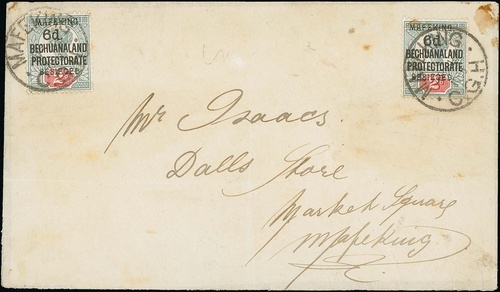 MAFEKING
6d
BECHUANALAND
PROTECTORATE
BESIEGED
MAFEKING
6d
BECHUANALAND
PROTECTORATE
BESIEGED
Mr Isaacs.
Dalls Store
Market Square
Mafeking